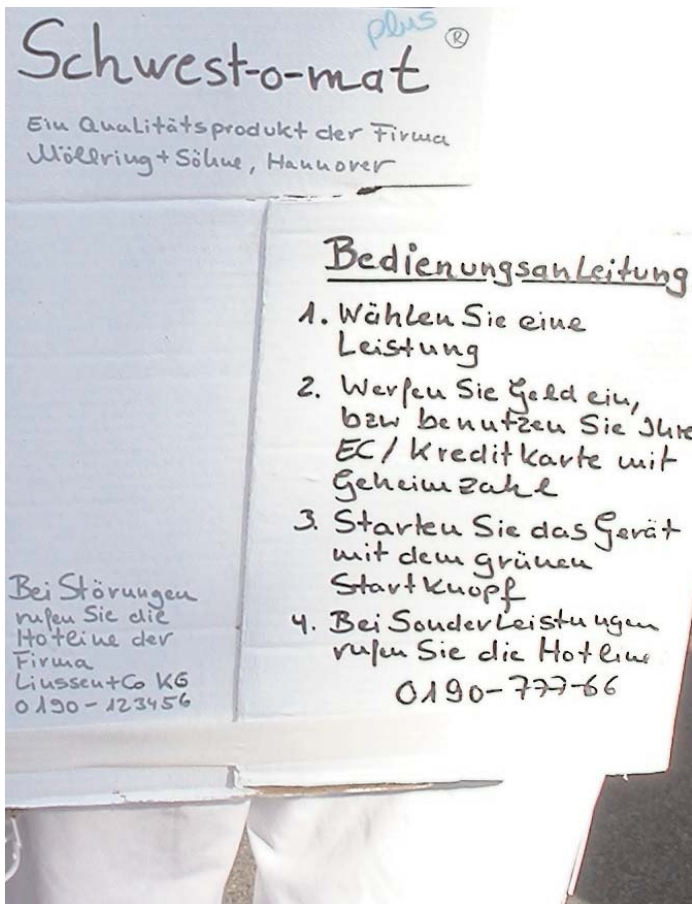 plus ®
Schwest-o-mat
Ein Qualitätsprodukt der Firma
Möllring + Söhne, Hannover
Bedienungsanleitung
1. Wählen Sie eine
Leistung
2. Werfen Sie Geld ein,
bzw benutzen Sie Ihre
EC / Kreditkarte mit
Geheimzahl
3. Starten Sie das Gerät
mit dem grünen
Startknopf
4. Bei Sonderleistungen
rufen Sie die Hotline
0190-777-66
Bei Störungen
rufen Sie die
Hotline der
Firma
Linssen+Co KG
0190-123456